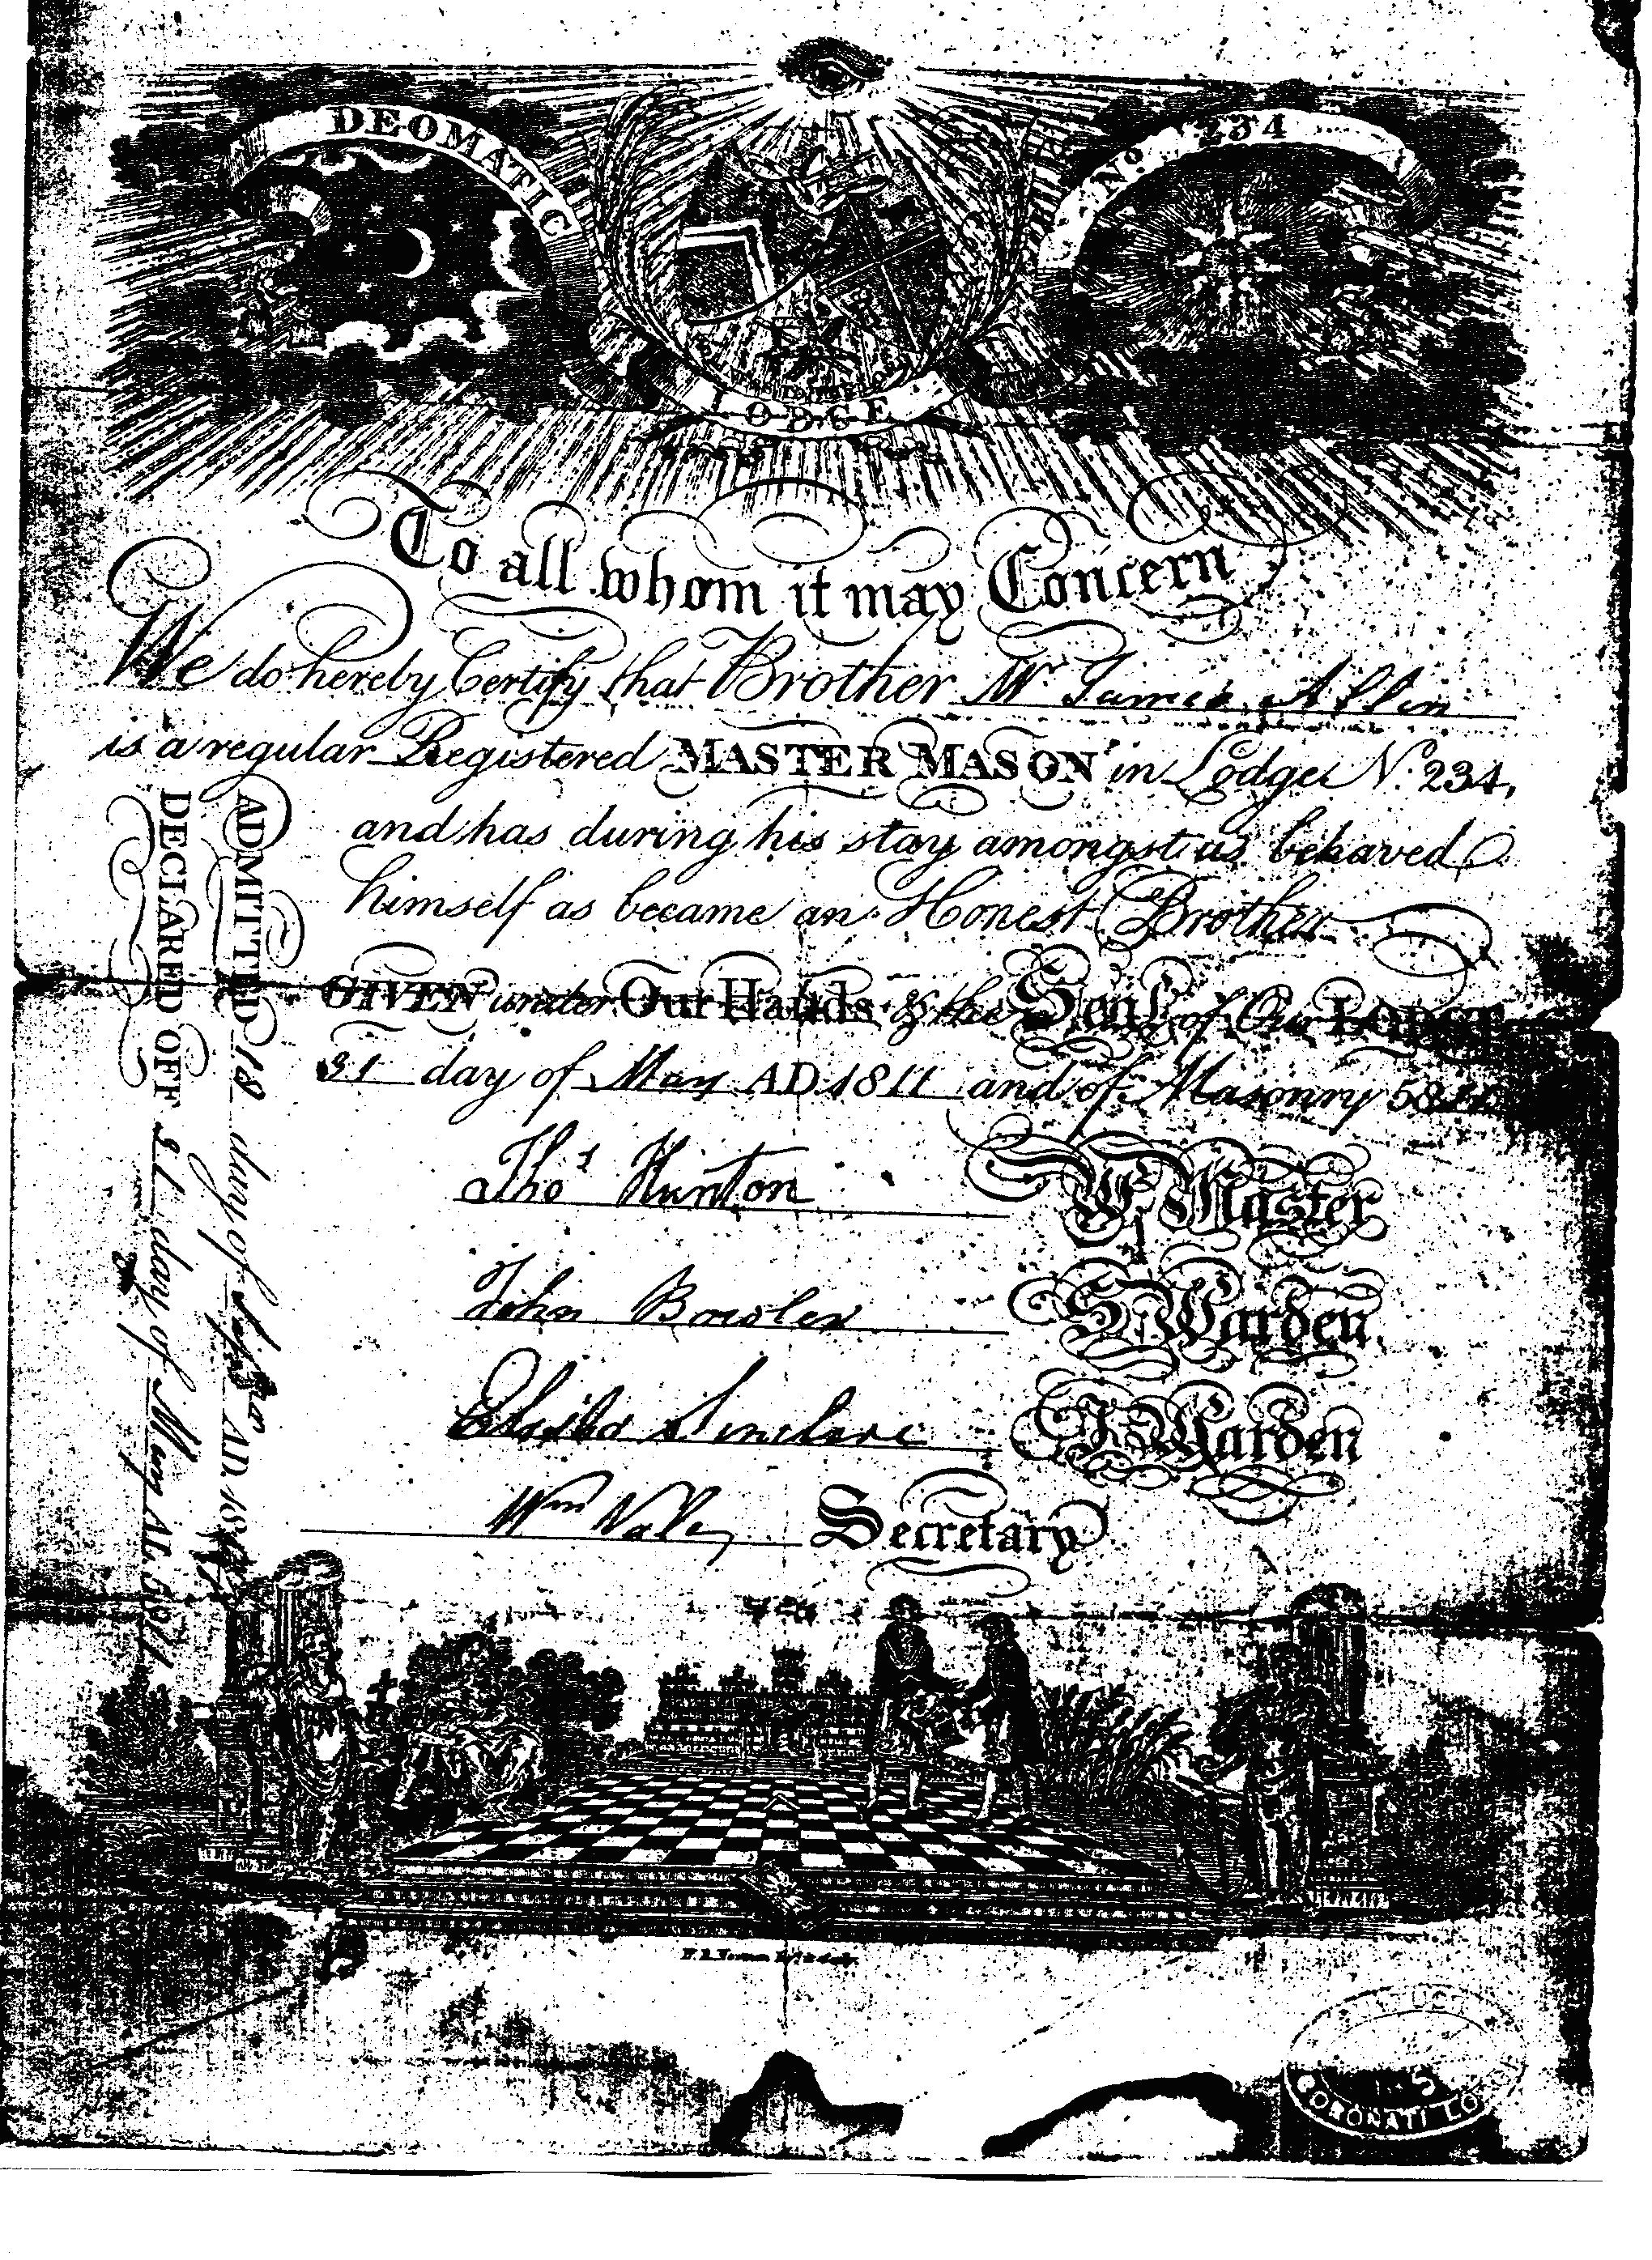 DE·OMATIC
No. 234
LODGE
To all whom it may Concern
We do hereby Certify that Brother Mr. James
is a regular Registered MASTER MASON in Lodge No. 234,
and has during his stay amongst us behaved
himself as became an Honest Brother
GIVEN under Our Hands & the Seal of Our LODGE
31 day of May AD. 1811 and of Masonry
Thos Hunton W. Master
John Bowler S. Warden
Sinclare J. Warden
Wm Secretary
ADMITTED 18 day of AD. 18
DECLARED OFF 31 day of May AL. 5811
CORONATI LO